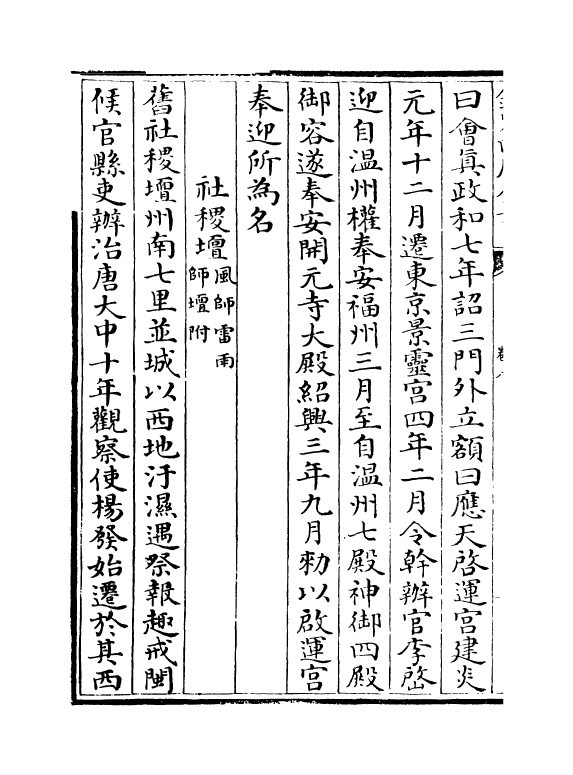 曰會真政和七年詔三門外立額曰應天啓運宫建炎
元年十二月遷東京景靈宫四年二月令幹辦官李啓
迎自温州權奉安福州三月至自温州七殿神御四殿
御容遂奉安開元寺大殿紹興三年九月勑以啟運宫
奉迎所為名
社稷壇風師雷雨師壇附
舊社稷壇州南七里並城以西地汙濕遇祭報趣戒閩
候官縣吏辦治唐大中十年觀察使楊發始遷於其西